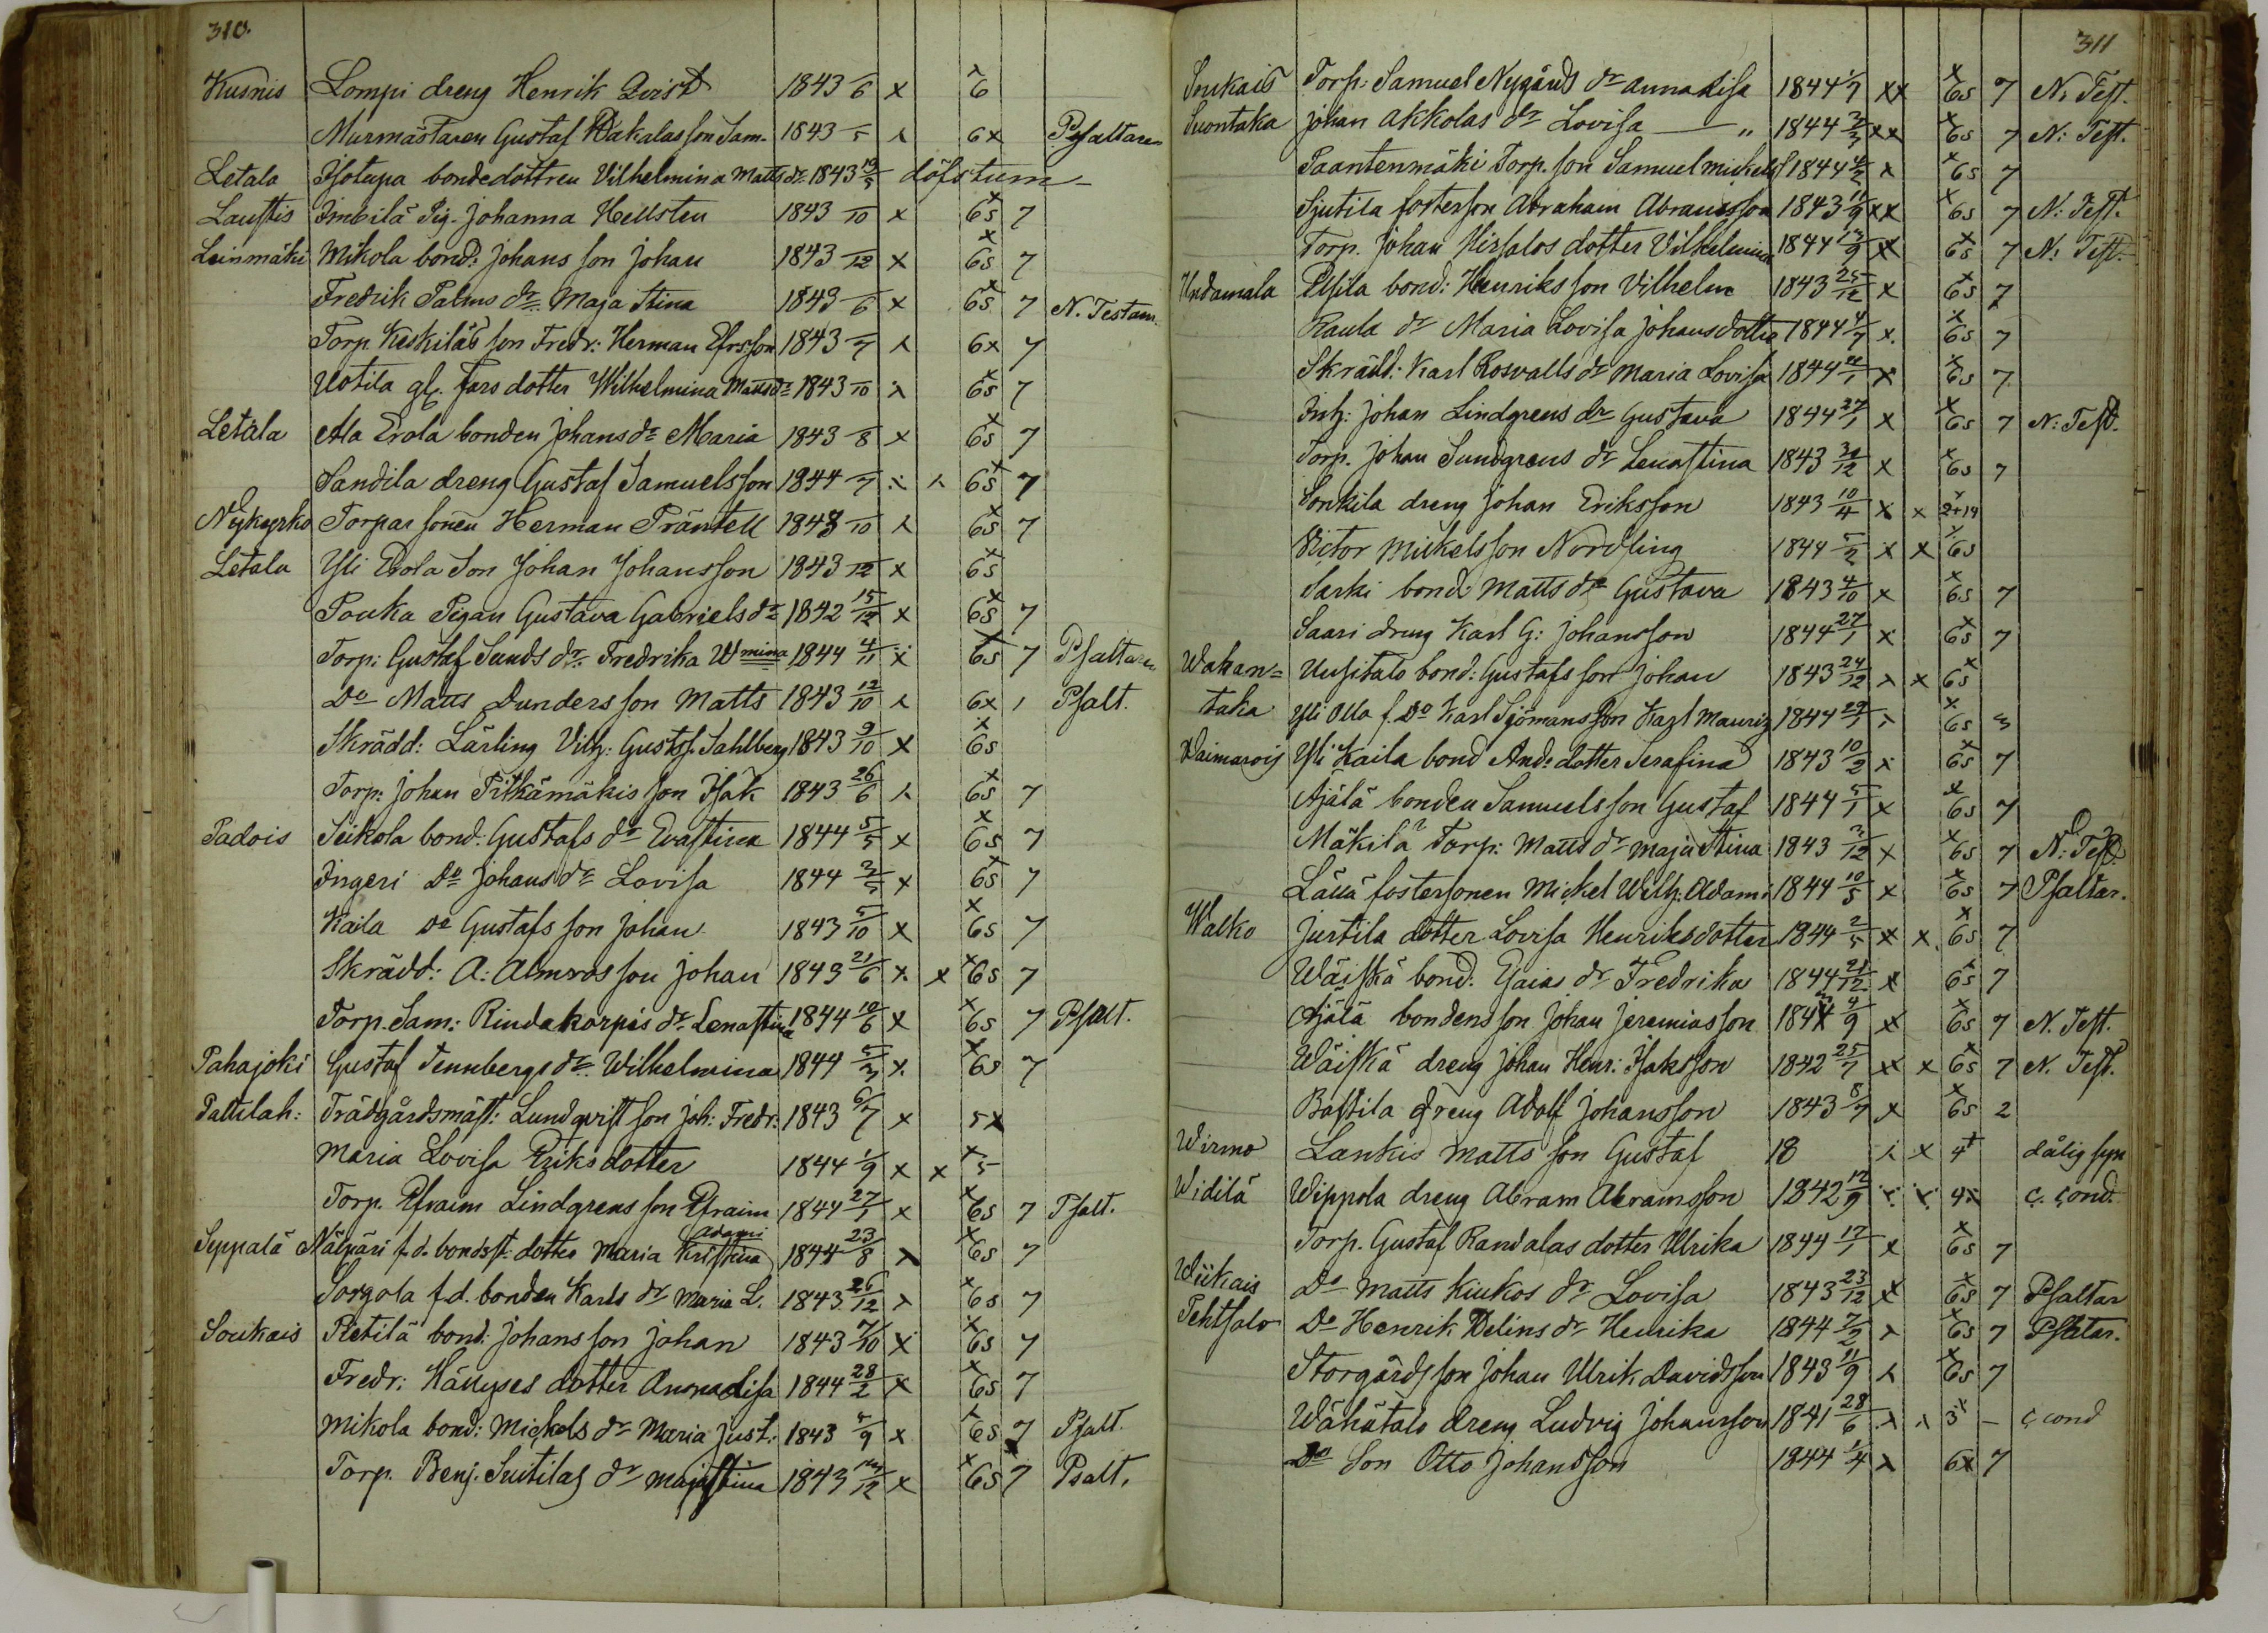 310.
Kusnis Lompi dreng Henrik Qvist 1843 /6 x 6
Murmästaren Gustaf Wakalas son Sam. 1843 /5 x 6x Psaltaren
Letala Isotupa bondedottren Vilhelmina Matts dr 1843 19/5 döfstum
Laustis Imbilä Pig. Johanna Hellsten 1843 /10 x 6s 7
Leinmäki Mikola bond: Johans son Johan 1843 /12 x 6s 7
Fredrik Palms dr Maja Stina 1843 /6 x 6s 7 N. Testam.
Torp. Keskiläs son Fredr: Herman Efrsson 1843 /7 x 6x 7
Uotila gl. fars dotter Wilhelmina Matts dr 1843 /10 x 6s 7
Letala Ala Erola bonden Johans dr Maria 1843 /8 x 6s 7
Sandila dreng Gustaf Samuelsson 1844 /7 x x 6s 7
Nykyrko Torpar sonen Herman Fräntell 1843 /10 x 6s 7
Letala Yli Erola Son Johan Johansson 1843 /12 x 6s
Pouka Pigan Gustava Gabriels dr 1842 15/12 x 6s 7
Torp: Gustaf Sunds dr Fredrika Wmina 1844 4/11 x 6s 7 Psaltaren
Do Matts Dunders son Matts 1843 12/10 x 6x Psalt.
Skrädd: Lärling Vilh: Gustfs. Sahlberg 1843 9/10 x 6s
Torp: Johan Pitkämäkis son Isak 1843 26/6 x 6s 7
Padois Seikola bond: Gustafs dr Evastina 1844 5/5 x 6s 7
Ingeri Do Johans dr Lovisa 1844 x 6s 7
Kaila Do Gustafs son Johan 1843 5/10 x 6s 7
Skrädd: A: Almroos son Johan 1843 21/6 x x 6s 7
Torp. Sam: Rindakorpis dr Lenastina 1844 10/6 x 6s 7 Psalt.
Pahajoki Gustaf Tennbergs dr Wilhelmina 1844 x 6s 7
Paltilah: Trädgårdsmäst: Lundqvist son Joh: Fredr: 1843 6/7 x 5x
Maria Lovisa Eriksdotter 1844 1/9 x x 5
Torp. Efraim Lindgrens son Efraim 1844 27/1 x 6s 7 Psalt.
Seppälä Nälpäri f.d. bondst: dotter Maria Kristina Adami 1844 23/8 x 6s 7
Sorgola f.d. bonden Karls dr Maria L. 1843 26/12 x 6s 7
Soukais Pietilä bond: Johans son Johan 1843 7/10 x 6s 7
Fredr: Hällyses dotter Annalisa 1844 28/2 x 6s 7
Mikola bond: Mickels dr Maria Just: 1843 /9 x 6s 7 Psalt.
Torp. Benj. Suitilas dr Majastina 1843 /12 x 6s 7 Psalt.
311
Soukais Torp: Samuel Nygårds dr Annalisa 1844 1/7 xx 6s 7 N. Test.
Suontaka Johan Akkolas dr Lovisa — " 1844 xx 6s 7 N: Test.
Paantenmäki Torp. son Samuel Mickels 1844 4/2 x 6s 7
Sjutila fosterson Abraham Abramsson 1843 11/9 xx 6s 7 N: Test.
Torp. Johan Hirsalos dotter Vilhelmina 1844 13/9 xx 6s 7 N: Test.
Undamala Pesila bond: Henriks son Vilhelm 1843 25/12 x 6s 7
Raula dr Maria Lovisa Johansdotter 1844 4/7 x. 6s 7
Skrädd: Karl Rosvalls dr Maria Lovisa 1844 21/1 x 6s 7
Inh: Johan Lindgrens dr Gustava 1844 27/1 x 6s 7 N: Test.
Torp. Johan Sundgrens dr Lenastina 1843 30/12 x 6s 7
Sonkila dreng Johan Eriksson 1843 10/4 x x 2+14
Victor Mickelsson Nordling 1844 5/2 x x 6s
Sarki bond Matts dr Gustava 1843 4/10 x 6s 7
Saari dreng Karl G: Johansson 1844 27/1 x 6s 7
Wakan= Uusitalo bond: Gustafs son Johan 1843 24/12 x x 6s
taka Yli Olla f. Do Karl Sjömans son Karl Mauriz 1844 29/1 x 6s 3
Waimarois Yli Kaila bond And: dotter Serafina 1843 10/2 x 6s 7
Ajälä bonden Samuels son Gustaf 1844 5/1 x 6s 7
Mäkilä Torp: Matts dr Maja Stina 1843 /12 x 6s 7 N: Test.
Lällä fostersonen Mickel Wilh: Adams 1844 10/5 x 6s 7 Psaltar.
Walko Jurtila dotter Lovisa Henriksdotter 1844 2/5 x x. 6s 7
Wäiskä bond: Ejaias dr Fredrika 1844 21/12 x 6s 7
Ajälä bondens son Johan Jeremiasson 184 4/9 x 6s 7 N. Test.
Wäiskä dreng Johan Henr: Isaksson 1842 25/7 x x 6s 7 N. Test.
Bastila dreng Adolf Johansson 1843 8/7 x 6s 2
Wirmo Lankis Matts son Gustaf 18 x x 4+ dålig syn
Widilä Wippola dreng Abram Abramsson 1842 12/9 x x 4x c. cond.
Torp. Gustaf Randalas dotter Ulrika 1844 17/1 x 6s 7
Wiikais Do Matts Kiukos dr Lovisa 1843 23/12 x 6s 7 Psaltar
Tehtsalo Do Henrik Delins dr Henrika 1844 7/2 x 6s 7 Psltar.
Storgårds son Johan Ulrik Davidsson 1843 11/9 x 6s 7
Wähätalo dreng Ludvig Johansson 1841 28/6 x x 3 — c cond
Do Son Otto Johansson 1844 1/4 x 6x 7